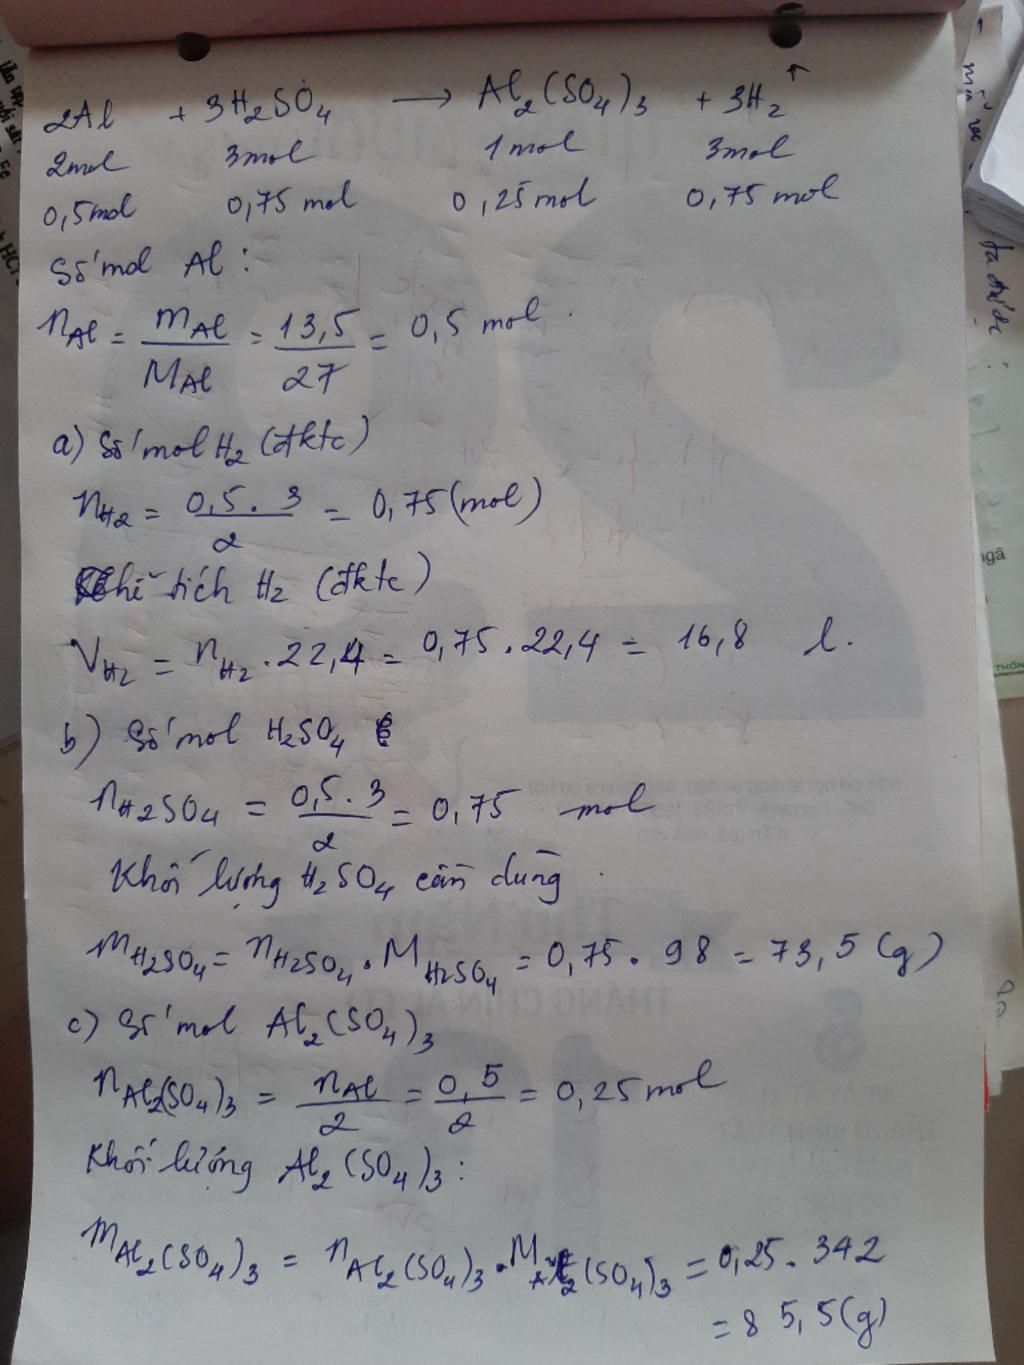 2Al + 3H₂SO₄ → Al₂(SO₄)₃ + 3H₂↑
2mol 3mol 1mol 3mol
0,5mol 0,75 mol 0,25mol 0,75 mol
Số mol Al :
nAl = mAl/MAl = 13,5/27 = 0,5 mol.
a) Số mol H₂ (đktc)
nH₂ = 0,5.3/2 = 0,75 (mol)
tích H₂ (đktc)
VH₂ = nH₂.22,4 = 0,75.22,4 = 16,8 l.
b) Số mol H₂SO₄
nH₂SO₄ = 0,5.3/2 = 0,75 mol
Khối lượng H₂SO₄ cần dùng.
mH₂SO₄ = nH₂SO₄.MH₂SO₄ = 0,75.98 = 73,5 (g)
c) Số mol Al₂(SO₄)₃
nAl₂(SO₄)₃ = nAl/2 = 0,5/2 = 0,25 mol
Khối lượng Al₂(SO₄)₃ :
mAl₂(SO₄)₃ = nAl₂(SO₄)₃.MAl₂(SO₄)₃ = 0,25.342
= 85,5 (g)